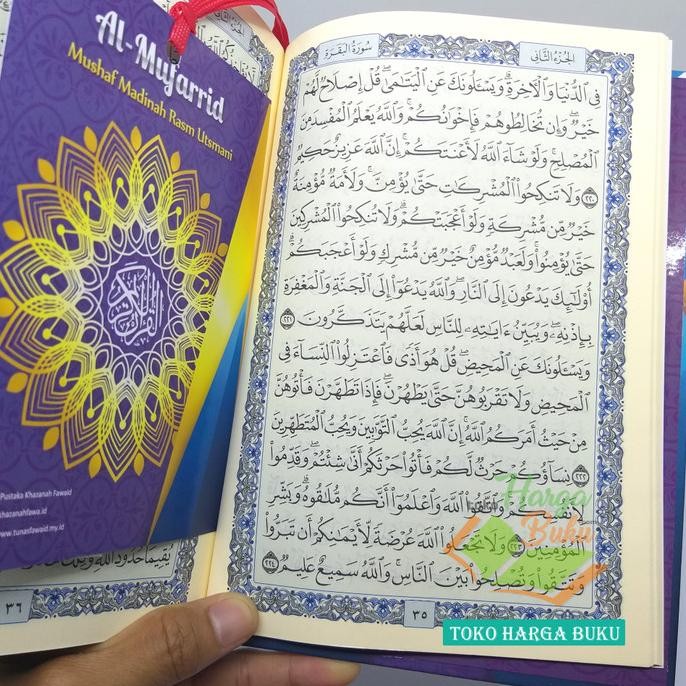 Al-Mujarrid
Mushaf Madinah Rasm Utsmani
Pustaka Khazanah Fawaid
khazanahfawa.id
www.tunasfawaid.my.id
٣٦
سورة البقرة
الجزء الثاني
فِي الدُّنْيَا وَالْآخِرَةِ وَيَسْـَٔلُونَكَ عَنِ الْيَتَـٰمَىٰ قُلْ إِصْلَاحٌ لَّهُمْ
خَيْرٌ وَإِن تُخَالِطُوهُمْ فَإِخْوَٰنُكُمْ وَاللَّهُ يَعْلَمُ الْمُفْسِدَ مِنَ
الْمُصْلِحِ وَلَوْ شَاءَ اللَّهُ لَأَعْنَتَكُمْ إِنَّ اللَّهَ عَزِيزٌ حَكِيمٌ
٢٢٠ وَلَا تَنكِحُوا الْمُشْرِكَـٰتِ حَتَّىٰ يُؤْمِنَّ وَلَأَمَةٌ مُّؤْمِنَةٌ
خَيْرٌ مِّن مُّشْرِكَةٍ وَلَوْ أَعْجَبَتْكُمْ وَلَا تُنكِحُوا الْمُشْرِكِينَ
حَتَّىٰ يُؤْمِنُوا وَلَعَبْدٌ مُّؤْمِنٌ خَيْرٌ مِّن مُّشْرِكٍ وَلَوْ أَعْجَبَكُمْ
أُولَـٰئِكَ يَدْعُونَ إِلَى النَّارِ وَاللَّهُ يَدْعُوا إِلَى الْجَنَّةِ وَالْمَغْفِرَةِ
بِإِذْنِهِ وَيُبَيِّنُ ءَايَـٰتِهِ لِلنَّاسِ لَعَلَّهُمْ يَتَذَكَّرُونَ ٢٢١
وَيَسْـَٔلُونَكَ عَنِ الْمَحِيضِ قُلْ هُوَ أَذًى فَاعْتَزِلُوا النِّسَاءَ فِي
الْمَحِيضِ وَلَا تَقْرَبُوهُنَّ حَتَّىٰ يَطْهُرْنَ فَإِذَا تَطَهَّرْنَ فَأْتُوهُنَّ
مِنْ حَيْثُ أَمَرَكُمُ اللَّهُ إِنَّ اللَّهَ يُحِبُّ التَّوَّٰبِينَ وَيُحِبُّ الْمُتَطَهِّرِينَ
٢٢٢ نِسَاؤُكُمْ حَرْثٌ لَّكُمْ فَأْتُوا حَرْثَكُمْ أَنَّىٰ شِئْتُمْ وَقَدِّمُوا
لِأَنفُسِكُمْ وَاتَّقُوا اللَّهَ وَاعْلَمُوا أَنَّكُم مُّلَـٰقُوهُ وَبَشِّرِ
الْمُؤْمِنِينَ ٢٢٣ وَلَا تَجْعَلُوا اللَّهَ عُرْضَةً لِّأَيْمَـٰنِكُمْ أَن تَبَرُّوا
وَتَتَّقُوا وَتُصْلِحُوا بَيْنَ النَّاسِ وَاللَّهُ سَمِيعٌ عَلِيمٌ ٢٢٤
٣٥
Harga
Buku
TOKO HARGA BUKU